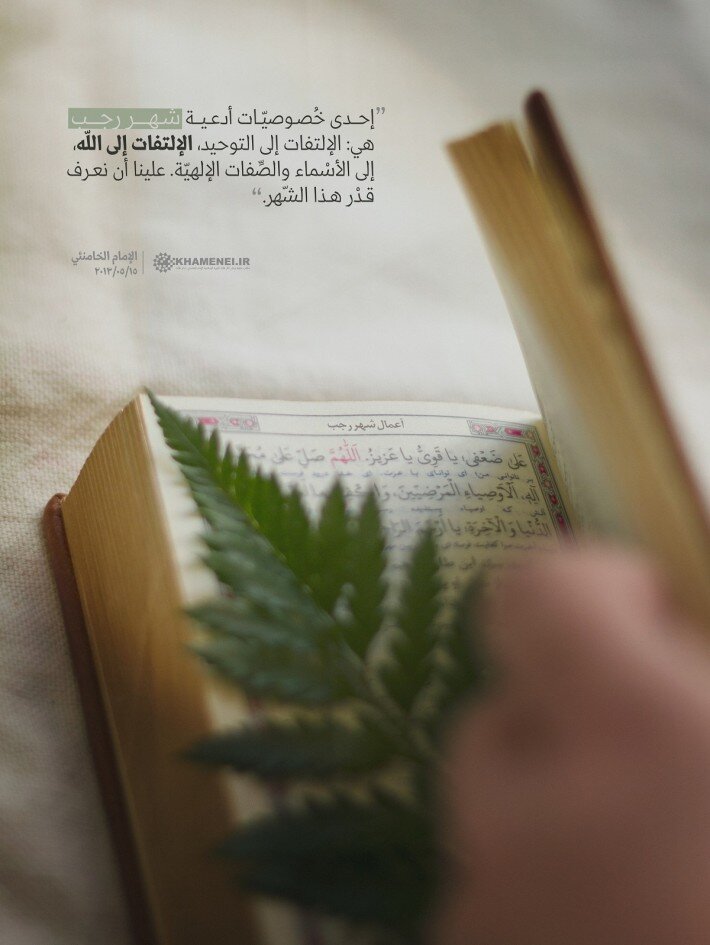 ”إحدى خُصوصيّات أدعية شهر رجب
هي: الإلتفات إلى التوحيد، الإلتفات إلى اللّه،
إلى الأسْماء والصِّفات الإلهيّة. علينا أن نعرف
قدْر هذا الشّهر.“
الإمام الخامنئي
٢٠١٣/٠٥/١٥
KHAMENEI.IR
أعمال شهر رجب
عَلىٰ ضَعْفي، يا قَوِيُّ يا عَزيزُ. اَللّٰهُمَّ صَلِّ عَلىٰ
اَلْأَوْصِياءِ الْمَرْضِيّينَ،
الدُّنْيا وَالْآخِرَةِ، يا أَرْحَمَ